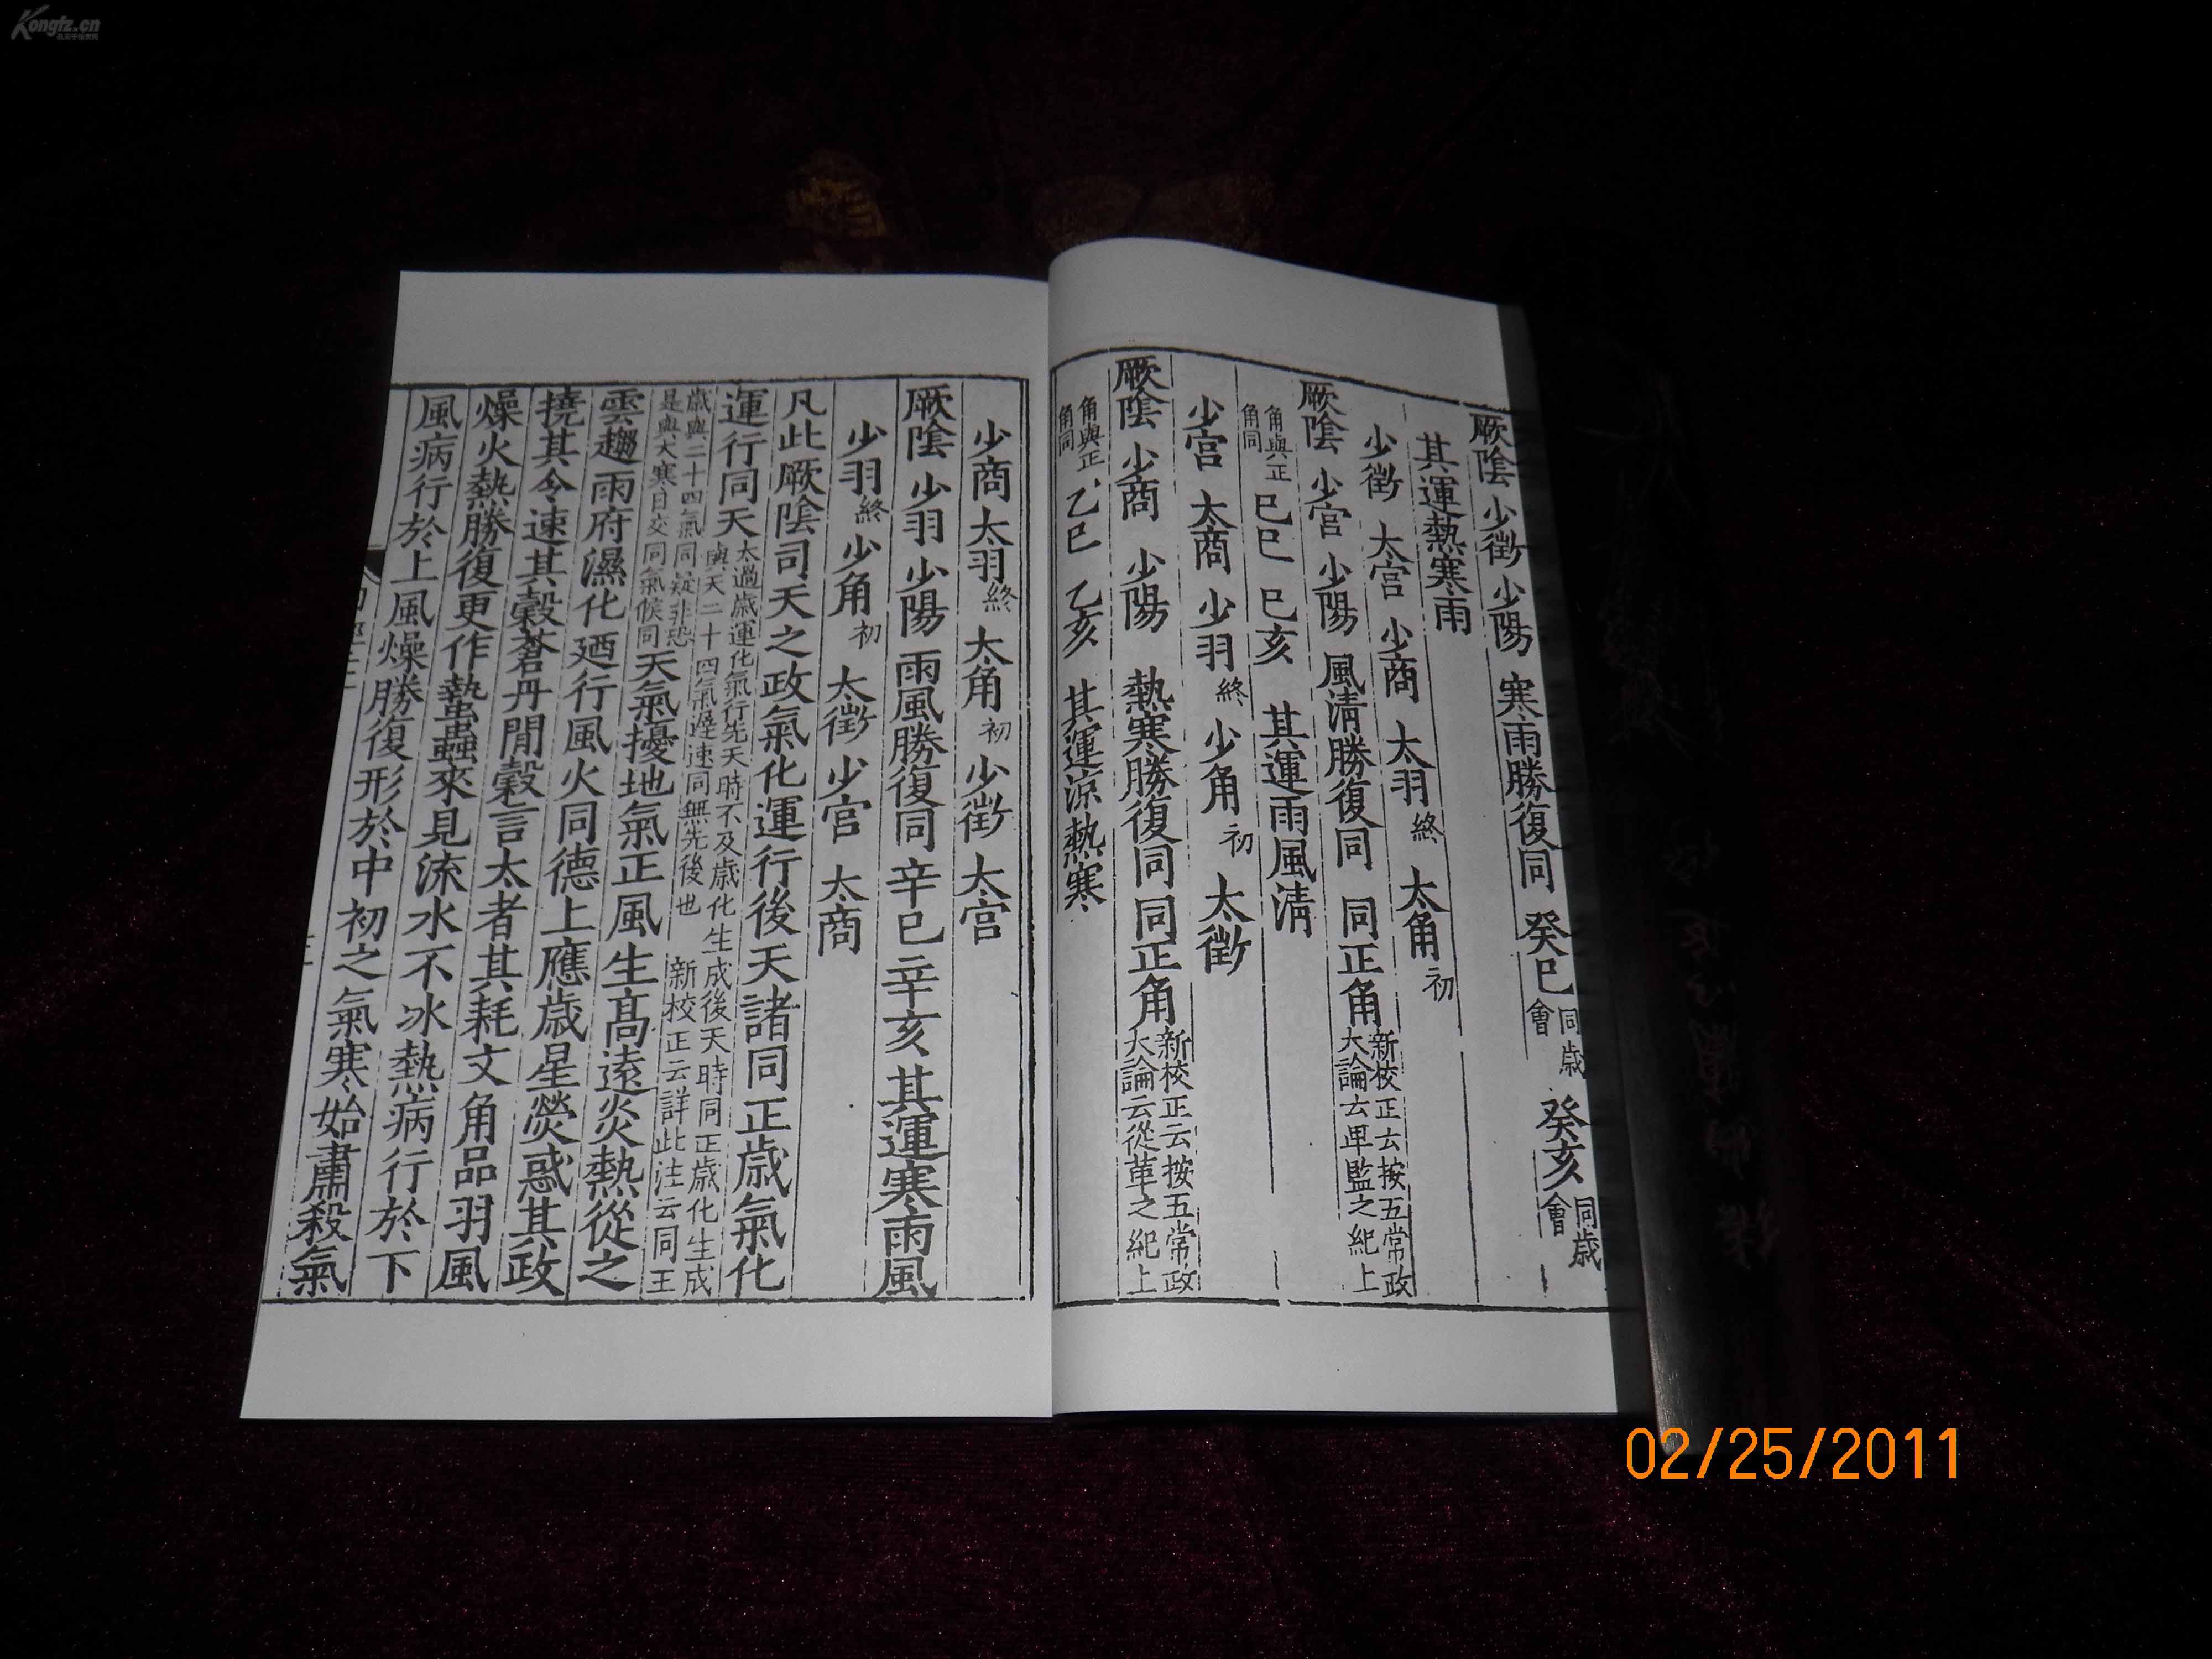 Kongfz.cn
厥陰 少徵 少陽 寒雨勝復同 癸巳 同歲會 癸亥 同歲會
其運熱寒雨
少徵 太宮 少商 太羽 終 太角 初
厥陰 少宮 少陽 風清勝復同 同正角 新校正云按五常政大論云卑監之紀上
角與正角同 己巳 己亥 其運雨風清
少宮 太商 少羽 終 少角 初 太徵
厥陰 少商 少陽 熱寒勝復同 同正角 新校正云按五常政大論云從革之紀上
角與正角同 乙巳 乙亥 其運涼熱寒
少商 太羽 終 太角 初 少徵 太宮
厥陰 少羽 少陽 雨風勝復同 辛巳 辛亥 其運寒雨風
少羽 終 少角 初 太徵 少宮 太商
凡此厥陰司天之政氣化運行後天諸同正歲氣化
運行同天 太過歲運化氣行先天時不及歲化生成後天時同正歲化生成與天二十四氣遲速同無先後也 新校正云詳此注云同正
歲與二十四氣同疑非恐是與大寒日交同氣候同 天氣擾地氣正風生高遠炎熱從之
雲趨雨府濕化廼行風火同德上應歲星熒惑其政
撓其令速其穀蒼丹間穀言太者其耗文角品羽風
燥火熱勝復更作蟄蟲來見流水不冰熱病行於下
風病行於上風燥勝復形於中 初之氣寒始肅殺氣
02/25/2011